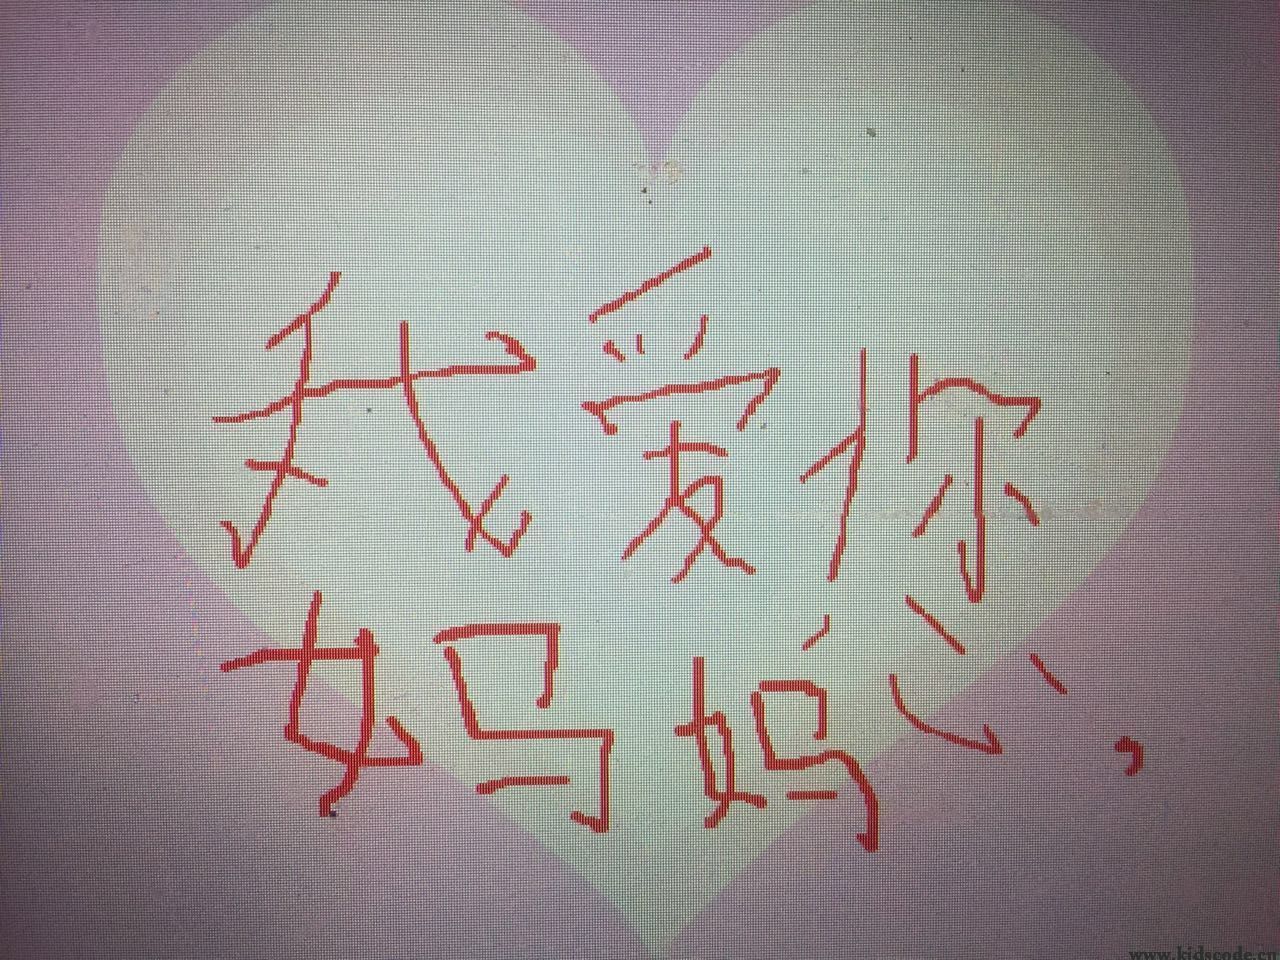 我爱你
妈妈心,
www.kidscode.cn